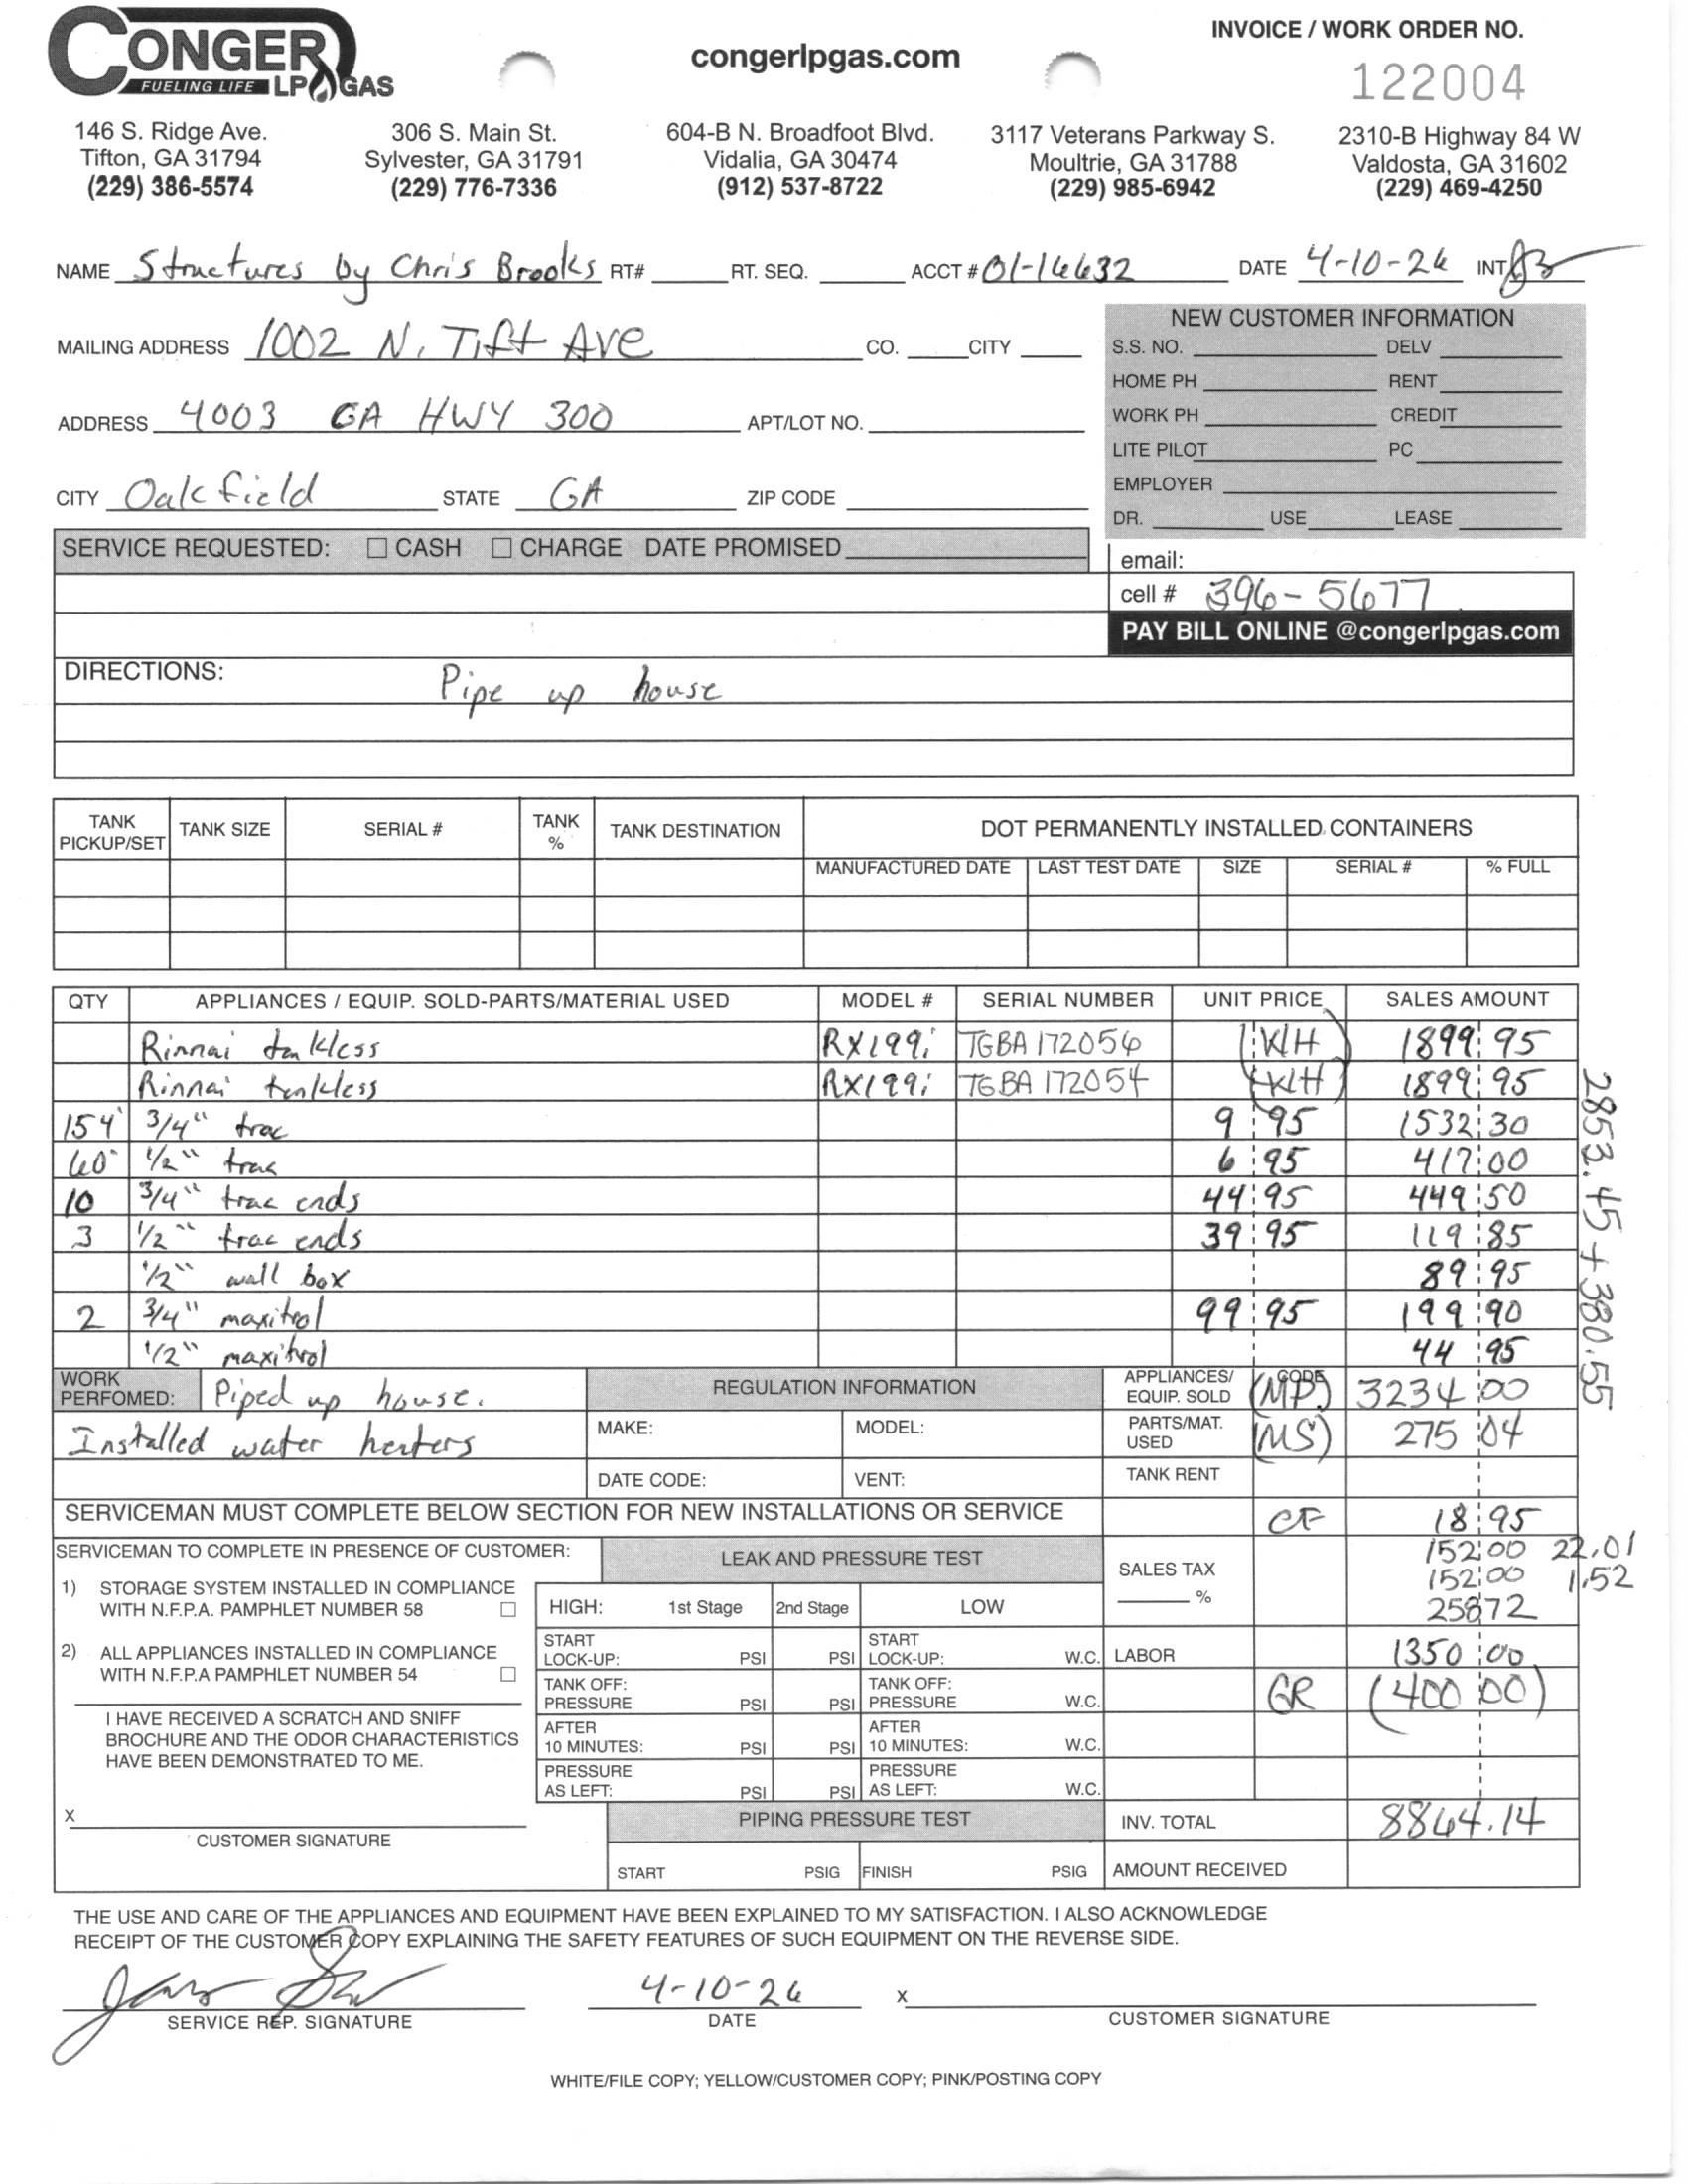 CONGER LP GAS
FUELING LIFE
congerlpgas.com
INVOICE / WORK ORDER NO.
122004
146 S. Ridge Ave. Tifton, GA 31794 (229) 386-5574
306 S. Main St. Sylvester, GA 31791 (229) 776-7336
604-B N. Broadfoot Blvd. Vidalia, GA 30474 (912) 537-8722
3117 Veterans Parkway S. Moultrie, GA 31788 (229) 985-6942
2310-B Highway 84 W Valdosta, GA 31602 (229) 469-4250
NAME Structures by Chris Brooks RT# RT. SEQ. ACCT # 01-16632 DATE 4-10-26 INT
MAILING ADDRESS 1002 N. Tift Ave CO. CITY
ADDRESS 4003 GA HWY 300 APT/LOT NO.
CITY Oakfield STATE GA ZIP CODE
NEW CUSTOMER INFORMATION
S.S. NO. DELV
HOME PH RENT
WORK PH CREDIT
LITE PILOT PC
EMPLOYER
DR. USE LEASE
SERVICE REQUESTED: ☐ CASH ☐ CHARGE DATE PROMISED
email:
cell # 396-5677
PAY BILL ONLINE @congerlpgas.com
DIRECTIONS: Pipe up house
TANK PICKUP/SET TANK SIZE SERIAL # TANK % TANK DESTINATION DOT PERMANENTLY INSTALLED CONTAINERS
MANUFACTURED DATE LAST TEST DATE SIZE SERIAL # % FULL
QTY APPLIANCES / EQUIP. SOLD-PARTS/MATERIAL USED MODEL # SERIAL NUMBER UNIT PRICE SALES AMOUNT
Rinnai tankless RX199i TGBA172056 (WH) 1899 95
Rinnai tankless RX199i TGBA172054 (WH) 1899 95
154' 3/4" trac 9 95 1532 30
60' 1/2" trac 6 95 417 00
10 3/4" trac ends 44 95 449 50
3 1/2" trac ends 39 95 119 85
1/2" wall box 89 95
2 3/4" maxitrol 99 95 199 90
1/2" maxitrol 44 95
2853.45 + 380.55
WORK PERFOMED: Piped up house.
Installed water heaters
REGULATION INFORMATION
MAKE: MODEL:
DATE CODE: VENT:
APPLIANCES/ EQUIP. SOLD CODE (MP) 3234 00
PARTS/MAT. USED (MS) 275 04
TANK RENT
SERVICEMAN MUST COMPLETE BELOW SECTION FOR NEW INSTALLATIONS OR SERVICE
CF 18 95
SERVICEMAN TO COMPLETE IN PRESENCE OF CUSTOMER:
1) STORAGE SYSTEM INSTALLED IN COMPLIANCE
WITH N.F.P.A. PAMPHLET NUMBER 58 ☐
2) ALL APPLIANCES INSTALLED IN COMPLIANCE
WITH N.F.P.A PAMPHLET NUMBER 54 ☐
I HAVE RECEIVED A SCRATCH AND SNIFF
BROCHURE AND THE ODOR CHARACTERISTICS
HAVE BEEN DEMONSTRATED TO ME.
X
CUSTOMER SIGNATURE
LEAK AND PRESSURE TEST
HIGH: 1st Stage 2nd Stage LOW
START LOCK-UP: PSI PSI START LOCK-UP: W.C.
TANK OFF: PRESSURE PSI PSI TANK OFF: PRESSURE W.C.
AFTER 10 MINUTES: PSI PSI AFTER 10 MINUTES: W.C.
PRESSURE AS LEFT: PSI PSI PRESSURE AS LEFT: W.C.
PIPING PRESSURE TEST
START PSIG FINISH PSIG
SALES TAX %
152 00 22.01
152 00 1.52
258 72
LABOR 1350 00
GR (400 00)
INV. TOTAL 8864.14
AMOUNT RECEIVED
THE USE AND CARE OF THE APPLIANCES AND EQUIPMENT HAVE BEEN EXPLAINED TO MY SATISFACTION. I ALSO ACKNOWLEDGE
RECEIPT OF THE CUSTOMER COPY EXPLAINING THE SAFETY FEATURES OF SUCH EQUIPMENT ON THE REVERSE SIDE.
4-10-26 X
SERVICE REP. SIGNATURE DATE CUSTOMER SIGNATURE
WHITE/FILE COPY; YELLOW/CUSTOMER COPY; PINK/POSTING COPY